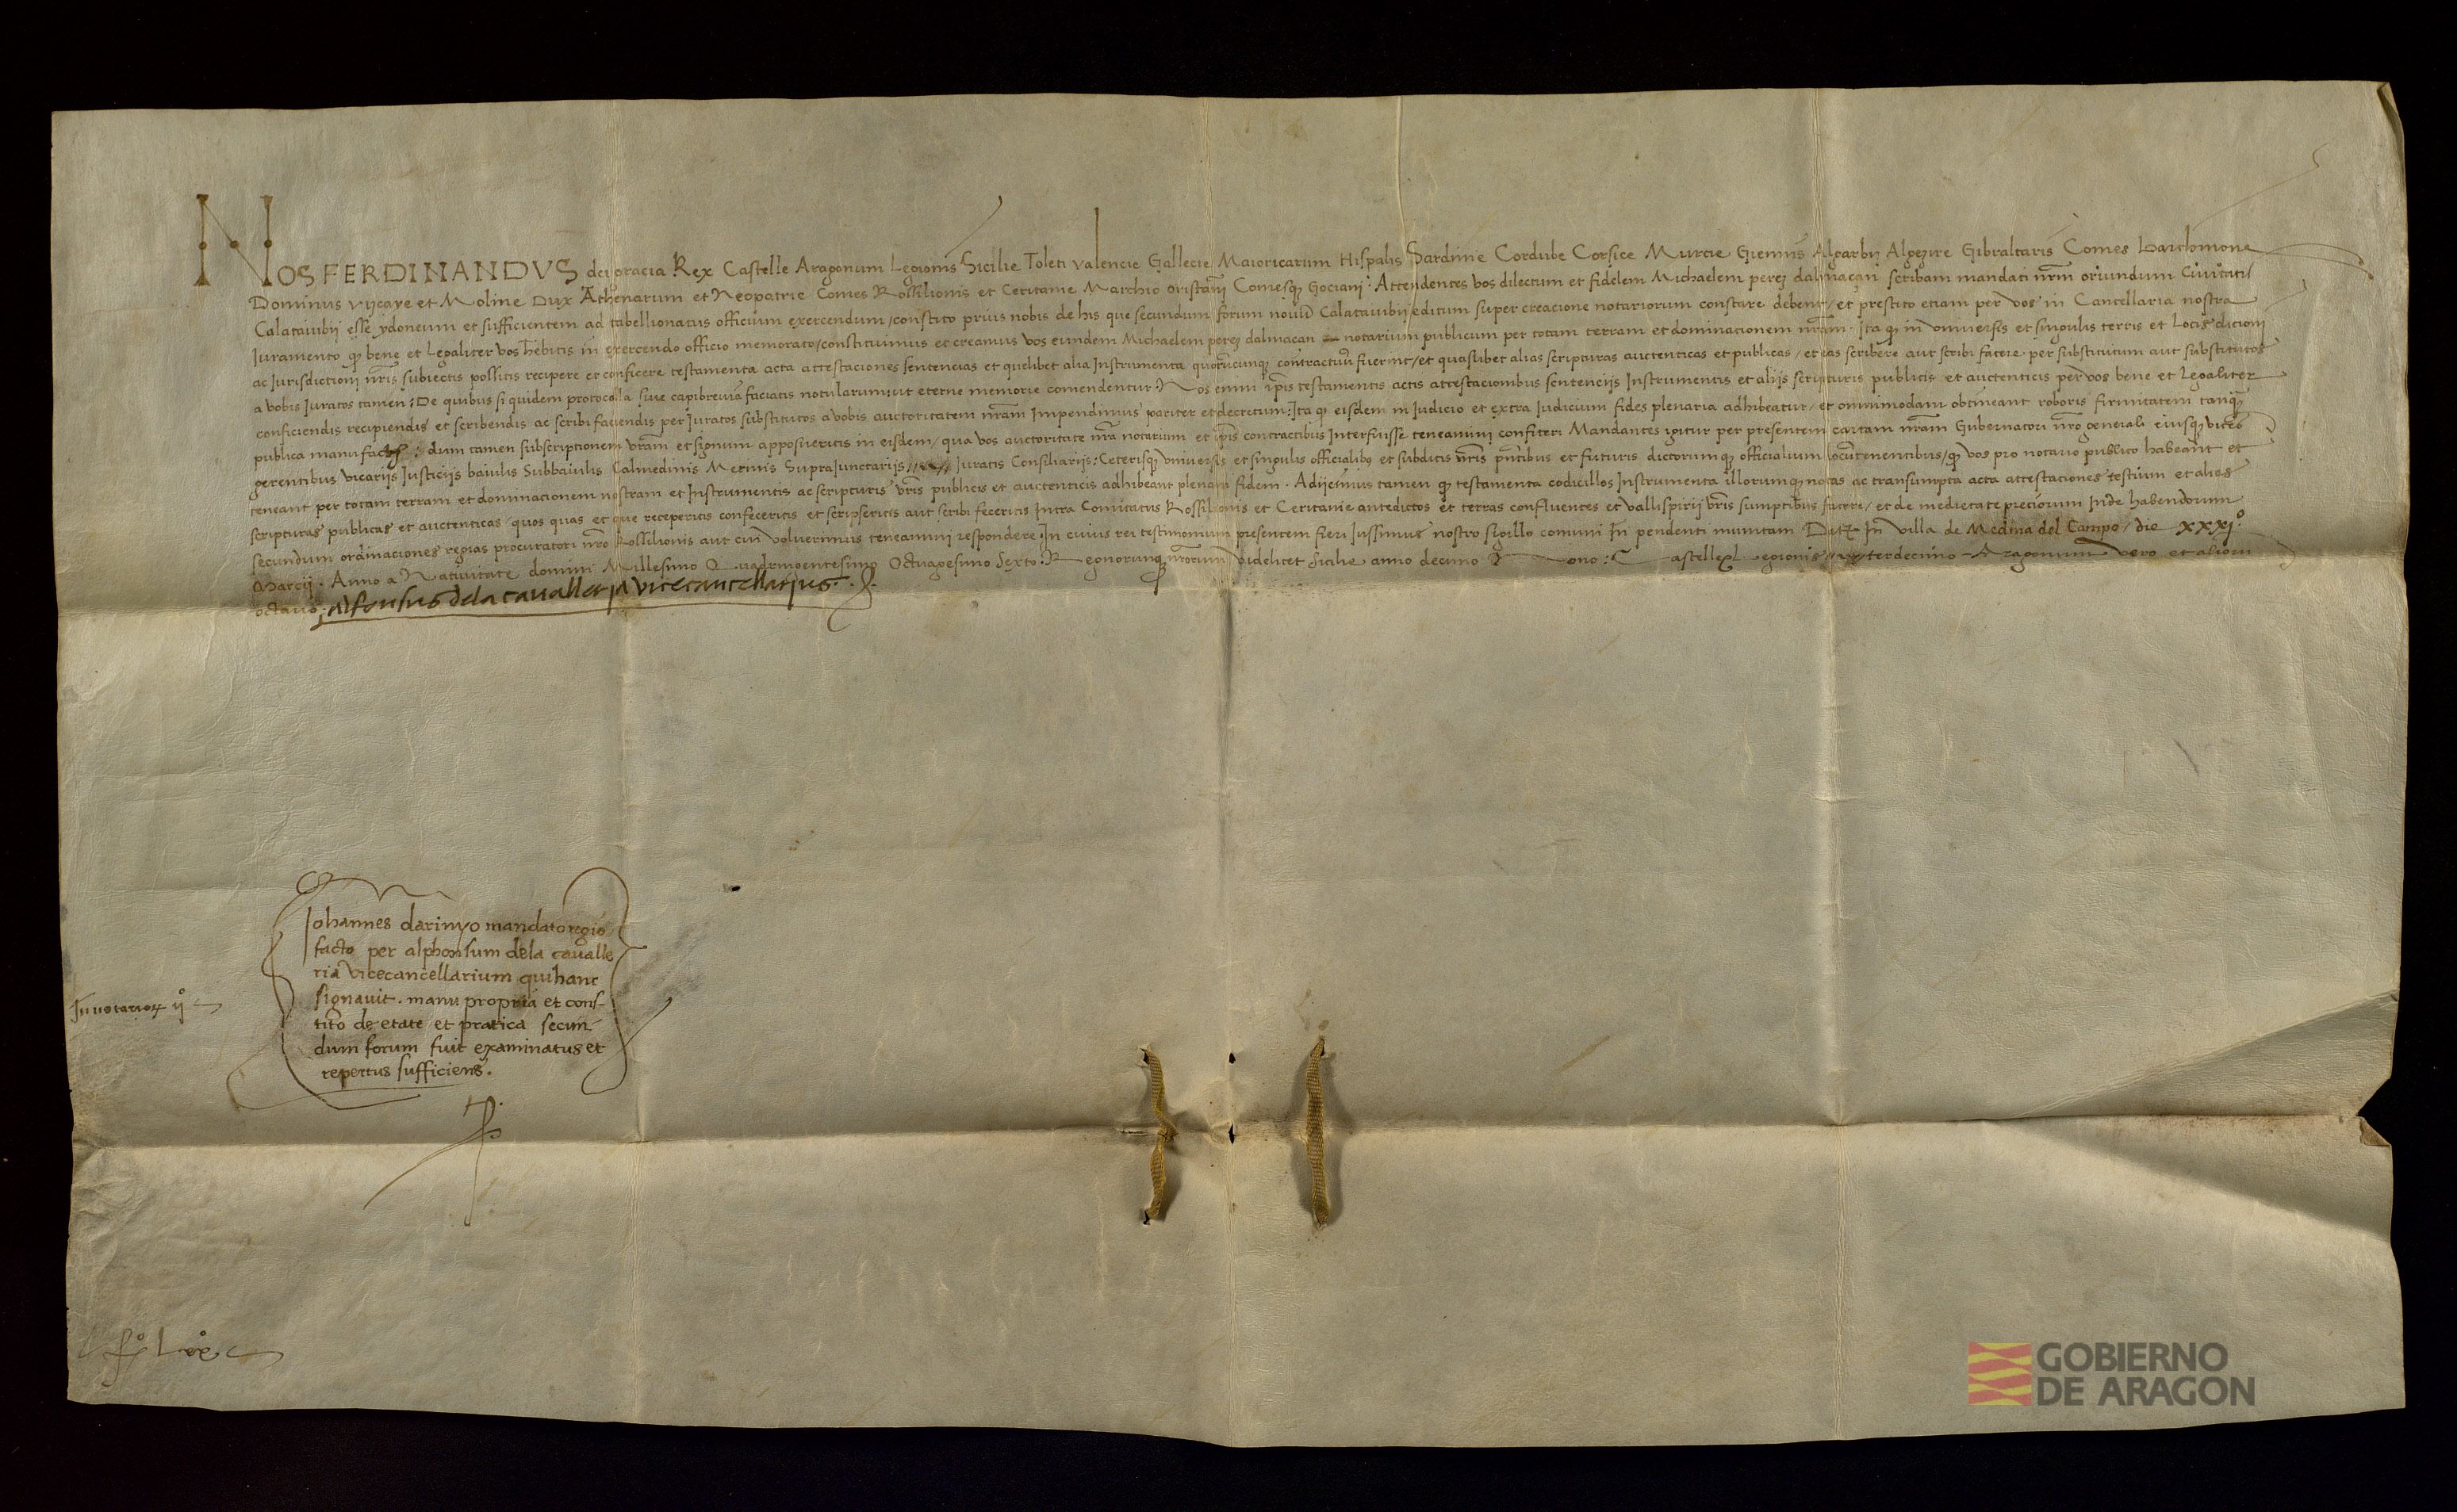 NOS FERDINANDVS dei gracia Rex Castelle Aragonum Legionis Sicilie Toleti Valencie Gallecie Maioricarum Hispalis Sardinie Cordube Corsice Murcie Giennis Algarbij Algezire Gibraltaris Comes Barchinone
Dominus vizcaye et Moline Dux Athenarum et Neopatrie Comes Rossilionis et Ceritanie Marchio Oristanij Comesq Gociani: Attendentes vos dilectum et fidelem Michaelem perez dalmaçan scribam mandati nrm oriundum Civitatis
Calataiubij esse ydoneum et sufficientem ad tabellionatus officium exercendum / constito prius nobis de his que secundum forum novum Calataiubij editum super creacione notariorum constare debent / et prestito etiam per vos in Cancellaria nostra
Iuramento q bene et legaliter vos hebitis in exercendo officio memorato / constituimus et creamus vos eundem Michaelem perez dalmaçan notarium publicum per totam terram et dominacionem nram. Ita q in universis et singulis terris et locis dicioni
ac Iurisdictioni nris subiectis possitis recipere et conficere testamenta acta attestaciones sentencias et quelibet alia Instrumenta quorucunq contractuu fuerint / et quaslibet alias scripturas auctenticas et publicas / et eas scribere aut scribi facere per substitutum aut substitutos
a vobis Iuratos tamen: De quibus si quidem protocolla sive capibrevia faciatis notularum ut eterne memorie comendentur: Nos enim ipis testamentis actis attestacionibus sentencijs Instrumentis et alijs scripturis publicis et auctenticis per vos bene et legaliter
conficiendis recipiendis et scribendis ac scribi faciendis per Iuratos substitutos a vobis auctoritatem nram Impendimus pariter et decretum: Ita q eisdem in Iudicio et extra Iudicium fides plenaria adhibeatur / et omnimodam obtineant roboris firmitatem tanq
publica manu factis: dum tamen subscriptionem vram et signum apposueritis in eisdem / qua vos auctoritate nra notarium et ipis contractibus Interfuisse teneamini confiteri Mandantes igitur per presentem cartam nram Gubernatori nro generali eiusq vices
gerentibus vicarijs Iusticijs baiulis Subbaiulis Calmedinis Merinis Suprajunctarijs Iuratis Consiliarijs: Ceterisq universis et singulis officialibus et subditis nris pntibus et futuris dictorumq officialium locutenentibus / q vos pro notario publico habeant et
teneant per totam terram et dominacionem nostram et Instrumentis ac scripturis vris publicis et auctenticis adhibeant plenam fidem. Adijcimus tamen q testamenta codicillos Instrumenta illorumq notas ac transumpta acta attestaciones testium et alias
scripturas publicas et auctenticas / quos quas et que receperitis confeceritis et scripseritis aut scribi feceritis Intra Comitatus Rossilionis et Ceritanie antedictos et terras confluentes et vallispirij vris sumptibus facere / et de medietate preciorum Inde habendorum
secundum ordinaciones regias procuratori nro Rossilionis aut cui voluerimus teneamini respondere. In cuius rei testimonium presentem fieri Iussimus nostro sigillo comuni In pendenti munitam Dat In villa de Medina del Campo / die xxxj.º
Marcij. Anno a Nativitate domini Millesimo Quadringentesimo Octuagesimo Sexto. Regnorumq nrorum videlicet Sicilie anno decimo Nono: Castelle Legionis terdecimo Aragonum vero et aliorum
octavo.
alfonsus dela cavalleria vicecancellarius.
Iohannes darinyo mandato regio
facto per alphonsum dela cavalle
ria vicecancellarium qui hanc
signavit. manu propria et cons-
tito de etate et pratica secun-
dum forum fuit examinatus et
repertus sufficiens.
In notariorum ijº
GOBIERNO
DE ARAGON